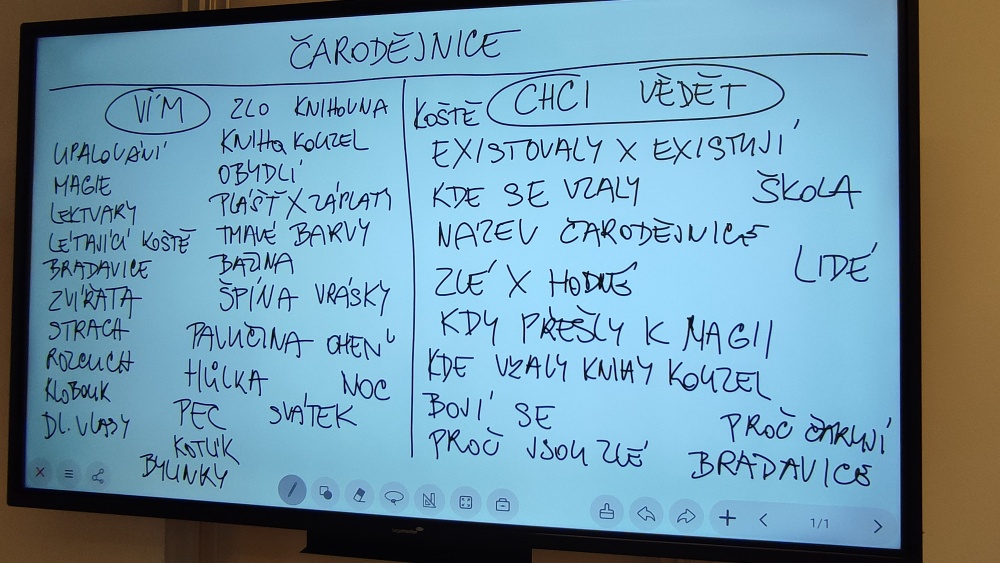 ČARODĚJNICE
VÍM
UPALOVÁNÍ
MAGIE
LEKTVARY
LÉTAJÍCÍ KOŠTĚ
BRADAVICE
ZVÍŘATA
STRACH
ROZRUCH
KLOBOUK
DL. VLASY
ZLO KNIHOVNA
KNIHA KOUZEL
OBYDLÍ
PLÁŠŤ X ZÁPLATY
TMAVÉ BARVY
BAŽINA
ŠPÍNA VRÁSKY
PAVUČINA OHEŇ
HŮLKA NOC
PEC SVÁTEK
KOTLÍK
BYLINKY
KOŠTĚ CHCI VĚDĚT
EXISTOVALY X EXISTUJÍ
KDE SE VZALY ŠKOLA
NAZEV ČARODĚJNICE
LIDÉ
ZLÉ X HODNÉ
KDY PŘEŠLY K MAGII
KDE VZALY KNIHY KOUZEL
BOJÍ SE
PROČ ČARUJÍ
PROČ JSOU ZLÉ
BRADAVICE
1/1